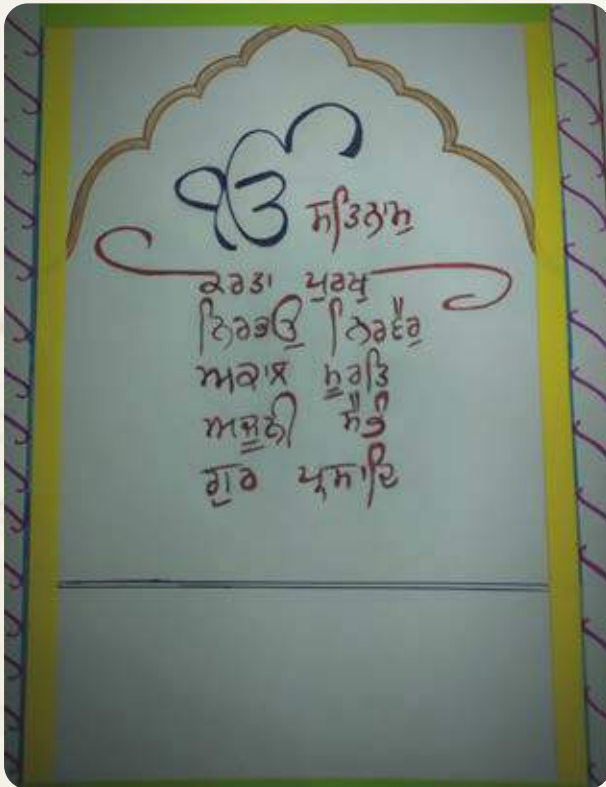 ੴ ਸਤਿਨਾਮੁ
ਕਰਤਾ ਪੁਰਖੁ
ਨਿਰਭਉ ਨਿਰਵੈਰੁ
ਅਕਾਲ ਮੂਰਤਿ
ਅਜੂਨੀ ਸੈਭੰ
ਗੁਰ ਪ੍ਰਸਾਦਿ